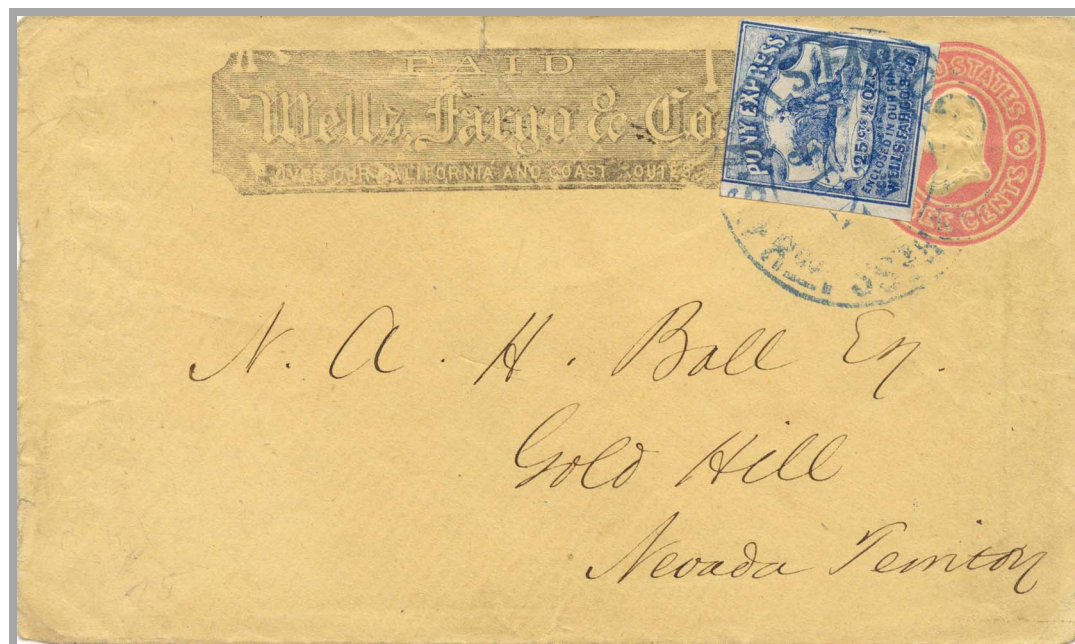 PAID
Wells, Fargo & Co.
OVER OUR CALIFORNIA AND COAST ROUTES
PONY EXPRESS
25 cts ½ OZ.
ENCLOSED IN OUR FRANKS
WELLS, FARGO & CO
STATES
CENTS
N. A. H. Ball Esq.
Gold Hill
Nevada Territory
25